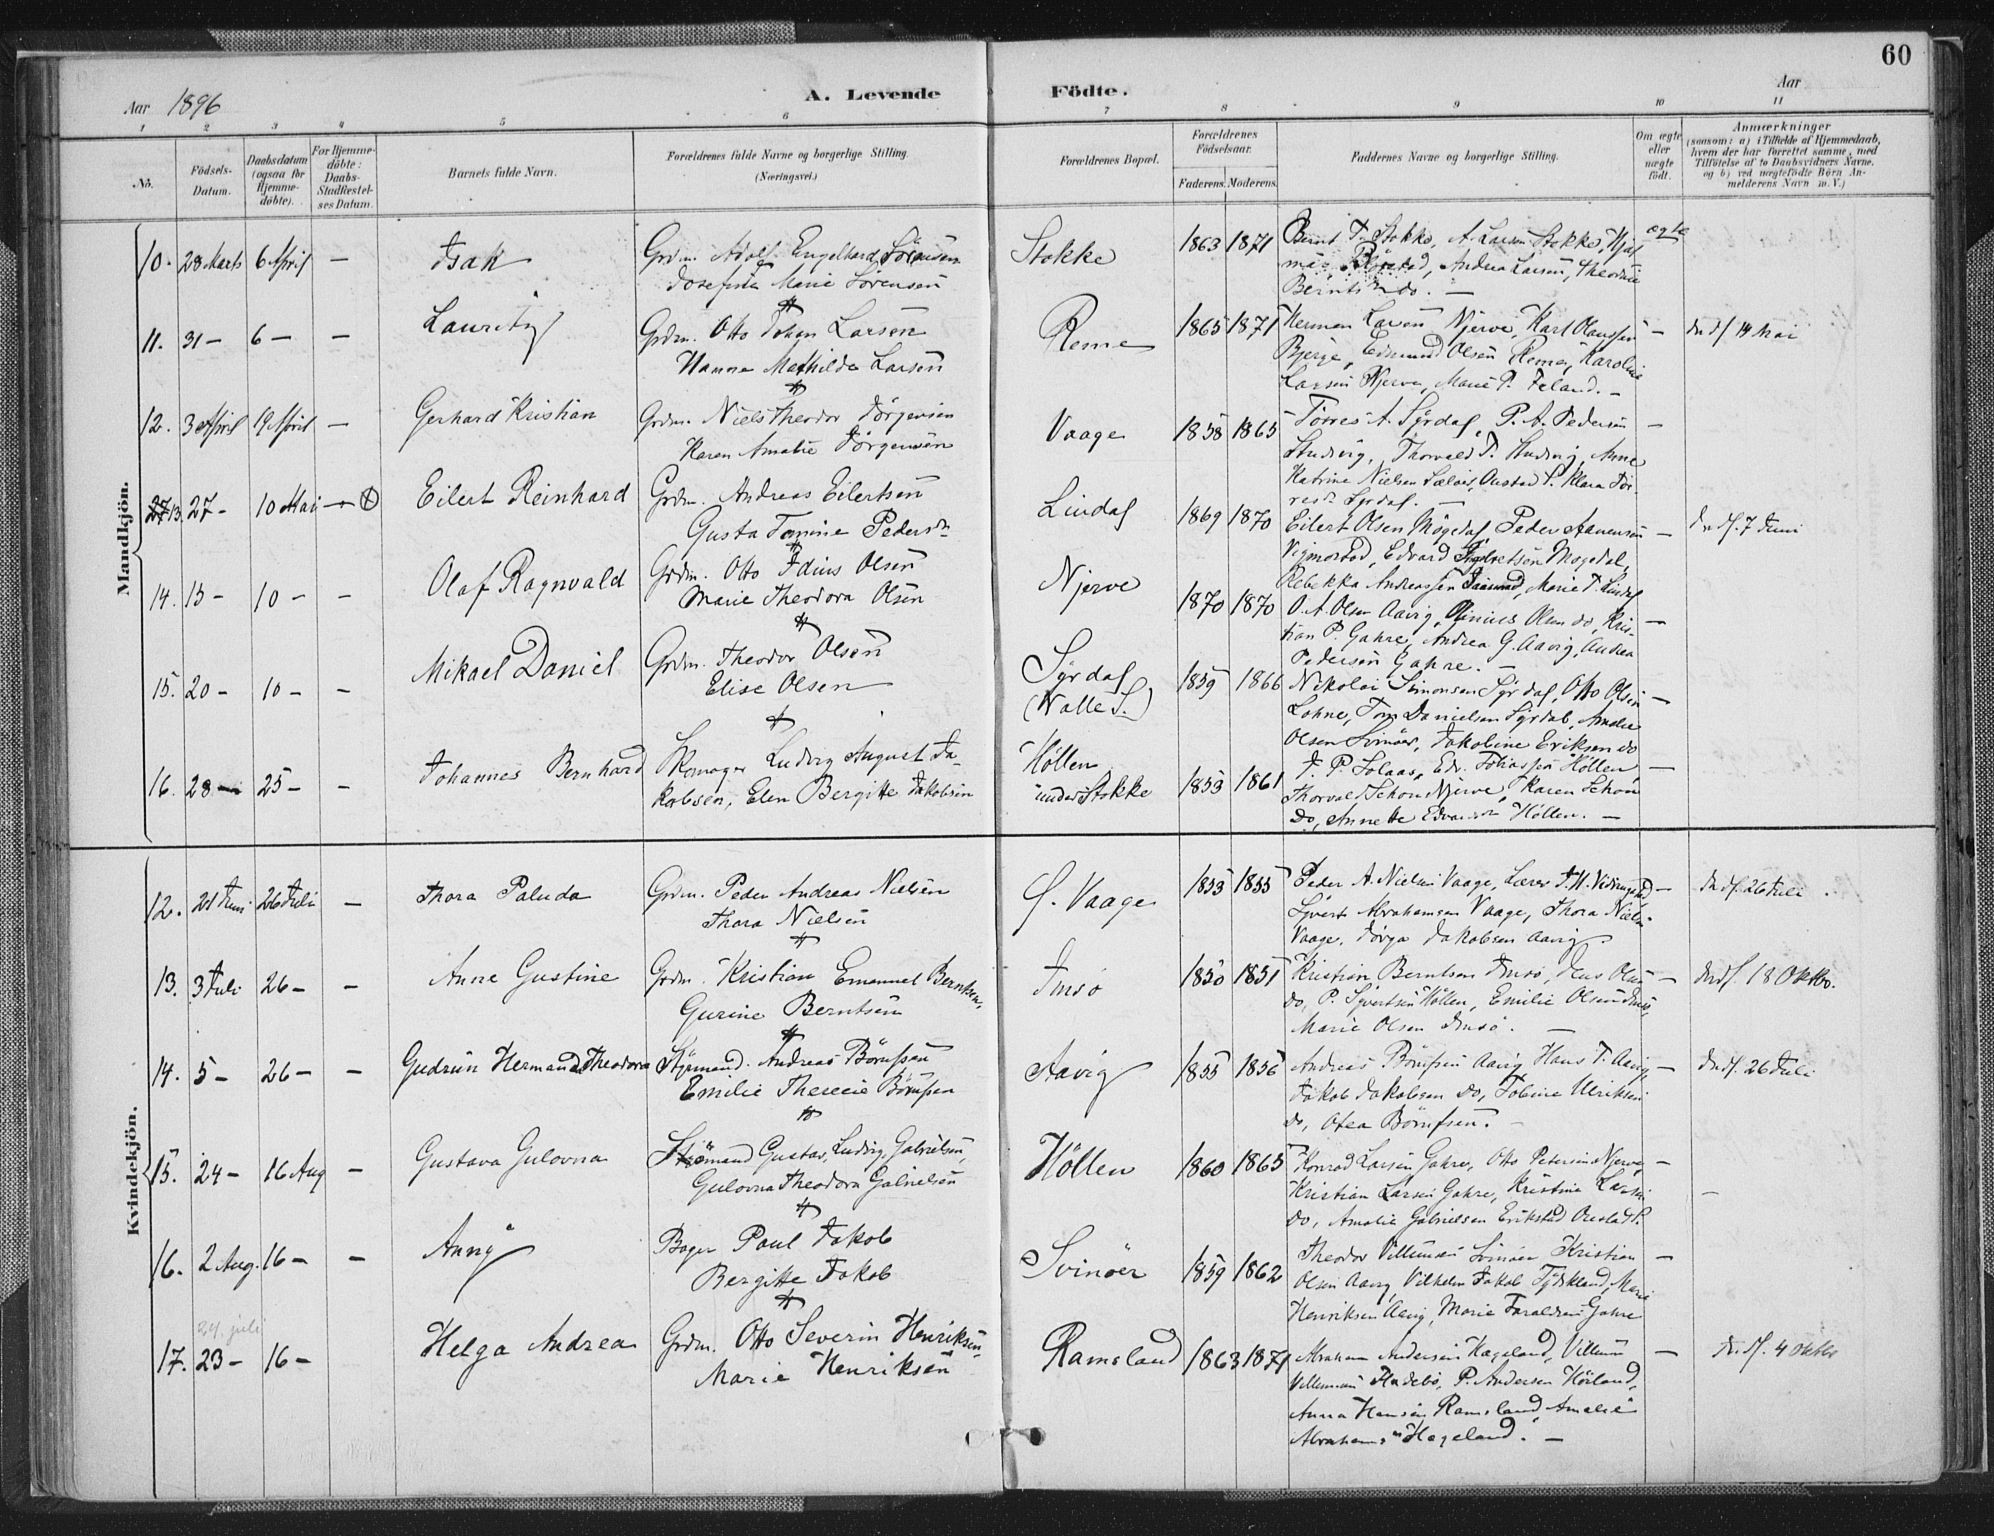 60
Aar 1896
A. Levende
Födte.
Aar
1 2 3 4 5 6 7 8 9 10 11
No.
Födsels-Datum.
Daabsdatum (ogsaa for Hjemme-döbte).
For Hjemme-döbte: Daabs-Stadfæstel-ses Datum.
Barnets fulde Navn.
Forældrenes fulde Navne og borgerlige Stilling.
(Næringsvei.)
Forældrenes Bopæl.
Forældrenes Födselsaar.
Faderens. Moderens.
Faddernes Navne og borgerlige Stilling.
Om ægte eller uægte födt.
Anmærkninger
(saasom: a) i Tilfælde af Hjemmedaab, hvem der har forrettet samme, med Tilföielse af to Daabsvidners Navne. og b) ved uægtefödte Börn An-melderens Navn m. V.)
Mandkjön.
10. 28 Marts 6 April — Isak
Grdm. Adolf Engelhard Sörensen
Josefine Marie Sörensen
Stokke 1863 1871
Bernt T. Stokke, A. Larsen Stokke, Hjal-
mar Rörstad, Andrea Larsen, Theodine
Berntsen do. —
ægte
11. 31 — 6 — — Lauritz
Grdm. Otto Johan Larsen
Hanna Mathilde Larsen
Reme 1865 1871
Herman Larsen Njerve, Karl Olaussen
Bjerge, Edmund Olsen Reme, Karoline
Larsen Njerve, Marie P. Feland. —
—
dndf 14 Mai
12. 3 April 19 April — Gerhard Kristian
Grdm. Niels Theodor Jörgensen
Karen Amalie Jörgensen
Vaage 1858 1865
Torres A. Syrdal, P. A. Pedersen
Studvig, Thorvald T. Studvig, Anne
Katrine Nielsen, Klara Tor-
resdr Syrdal. —
—
13. 27 — 10 Mai — Eilert Reinhard
Grdm. Andreas Eilertsen
Gusta Tomine Pedersdr
Lindal 1869 1870
Eilert Olsen Mögedal, Peder Aanensen
Vigmostad, Edvard Mogedal,
Rebekka Andreassen, Marie T. Lindal
—
dndf. 7 Juni
14. 15 — 10 — — Olaf Ragnvald
Grdm. Otto Edius Olsen
Marie Theodora Olsen
Njerve 1870 1870
O. A. Olsen Aavig, Olsen do, Kris-
tian P. Gahre, Andrea G. Aavig, Andrea
Pedersen Gahre. —
—
15. 20 — 10 — — Mikael Daniel
Grdm. Theodor Olsen
Elise Olsen
Syrdal
(Valle S.)
1859 1866
Nikolai Simonsen Syrdal, Otto Olsen
Lohne, Tom Danielsen Syrdal, Amalie
Olsen Svinöer, Jakobine Eriksen do
—
16. 28 — 25 — — Johannes Bernhard
Skomager Ludvig August Ja-
kobsen, Elen Bergitte Jakobsen
Höllen
under Stokke
1853 1861
T. P. Solaas, Edv. Tobiassen Höllen,
Thorvald Schou Njerve, Karen Schou
do, Annette Höllen. —
—
Kvindekjön.
12. 21 Juni 26 Juli — Thora Paluda
Grdm. Peder Andreas Nielsen
Thora Nielsen
Vaage 1853 1855
Peder A. Nielsen Vaage, Lærer
Syvert Abrahamsen Vaage, Thora Nielsen
Vaage, Jörga Jakobsen Aavig
—
dndf. 26 Juli
13. 3 Juli 26 — — Anne Gustine
Grdm. Kristian Emanuel Berntsen,
Gurine Berntsen
Imsö 1850 1851
Kristian Berntsen Imsö, Jens Olsen
do, P. Syvertsen Höllen, Emilie Olsen Imsö,
Marie Olsen Imsö. —
—
dndf. 18 Oktbr.
14. 5 — 26 — — Gudrun Hermande Theodora
Styrmand. Andreas Börufsen
Emilie Therecie Börufsen
Aavig 1855 1856
Andreas Börufsen Aavig, Hans T. Aavig,
Jakob Jakobsen do, Tobine Ulriksen
do, Otea Börufsen. —
—
dndf. 26 Juli
15. 24 — 16 Aug — Gustava Gulovna
Gustav Ludvig Gabrielsen,
Gulovna Theodora Gabrielsen
Höllen 1860 1865
Konrad Larsen Gahre, Otto Petersen Njerve,
Kristian Larsen Gahre, Kristine Larsen
do, Amalie Gabrielsen Erikstad
—
—
16. 2 Aug. 16 — — Anny
Bager Paul Jakob
Bergitte Jakob
Svinöer 1859 1862
Theodor Villumsen Svinöer, Kristian
Olsen Aavig, Vilhelm Jakob Tydskland, Marie
Henriksen Aavig, Marie Gahre
—
24. juli
17. 23 — 16 — Helga Andrea
Grdm. Otto Severin Henriksen,
Marie Henriksen
Ramsland 1863 1871
Abraham Andersen Hageland, Villum
Villumsen, P. Andersen Hörland,
Anna Hansen Ramsland, Amalie
Abrahamsen Hageland. —
—
dndf. 4 Oktbr